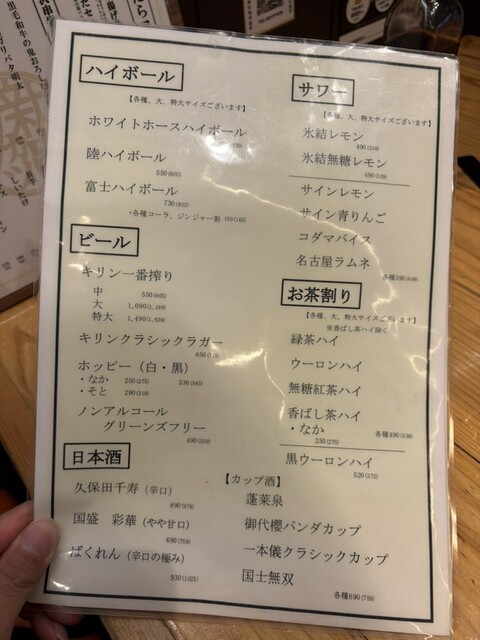 ハイボール
【各種、大、特大サイズございます】
ホワイトホースハイボール
陸ハイボール
550(605)
富士ハイボール
730(803)
・各種コーラ、ジンジャー割 150(165)
ビール
キリン一番搾り
中 550(605)
大 1,090(1,199)
特大 1,490(1,639)
キリンクラシックラガー
650
ホッピー(白・黒)
530(583)
・なか 250(275)
・そと 290(319)
ノンアルコール
グリーンズフリー
490(539)
日本酒
久保田千寿(辛口)
890(979)
国盛 彩華(やや甘口)
690(759)
ばくれん(辛口の極み)
930(1,023)
サワー
【各種、大、特大サイズございます】
氷結レモン
490(539)
氷結無糖レモン
490(539)
サインレモン
サイン青りんご
コダマバイス
名古屋ラムネ
各種590(649)
お茶割り
【各種、大、特大サイズございます】
※香ばし茶ハイ除く
緑茶ハイ
ウーロンハイ
無糖紅茶ハイ
香ばし茶ハイ
・なか
250(275)
各種490(539)
黒ウーロンハイ
520(572)
【カップ酒】
蓬莱泉
御代櫻パンダカップ
一本儀クラシックカップ
国士無双
各種690(759)
黒毛和牛の鬼おろし
ガリバタ明太